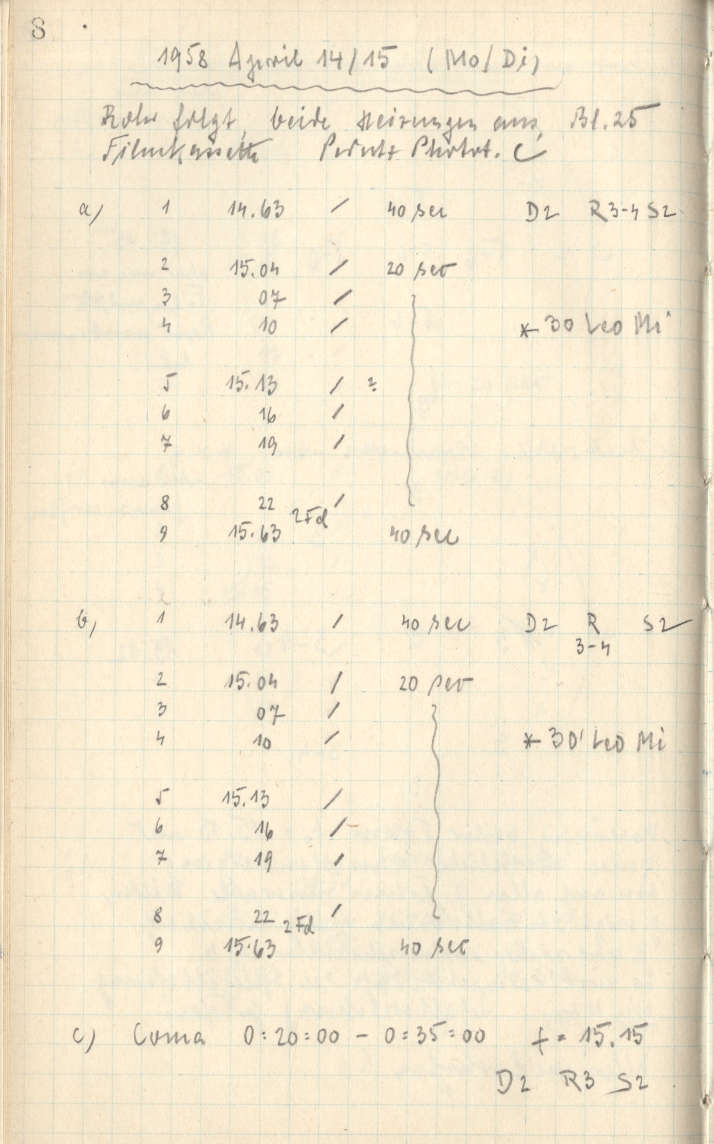 8
1958 April 14/15 (Mo/Di)
Rohr folgt, beide Heizungen aus, Bl. 25
Filmkassette Perutz Phot. C
a) 1 14.63 / 40 sec D2 R3-4 S2
2 15.04 / 20 sec
3 07 /
4 10 / * 30 Leo Mi
5 15.13 / ?
6 16 /
7 19 /
8 22 /
2 Fd
9 15.63 40 sec
b) 1 14.63 / 40 sec D2 R S2
3-4
2 15.04 / 20 sec
3 07 /
4 10 / * 30 Leo Mi
5 15.13 /
6 16 /
7 19 /
8 22 /
2 Fd
9 15.63 40 sec
c) Coma 0:20:00 - 0:35:00 f = 15.15
D2 R3 S2